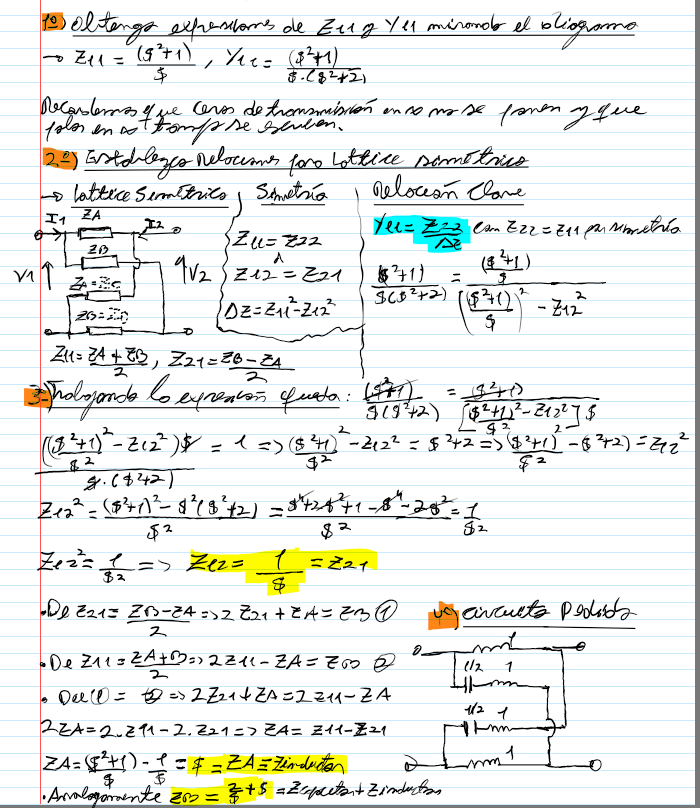 1º) Obtengo expresiones de Z11 y Y11 mirando el diagrama
→ Z11 = ($²+1)/$ , Y11 = ($²+1)/($.($²+2))
Recordemos que ceros de transmisión en ∞ no se ponen y que
polos en ∞ se
2º) Establezco Relaciones para Lattice simétrico
→ Lattice Simétrico
Simetría
Relación Clave
I1 ZA I2
ZB
V1
V2
ZA = ZC
ZB = ZD
Z11 = Z22
Z12 = Z21
ΔZ = Z11² - Z12²
Y11 = Z22/ΔZ con Z22 = Z11 por simetría
($²+1)/($($²+2)) = (($²+1)/$)/((($²+1)/$)² - Z12²)
Z11 = (ZA + ZB)/2 , Z21 = (ZB - ZA)/2
3-) Trabajando la expresión queda: ($²+1)/($($²+2)) = ($²+1)/([($²+1)²/$² - Z12²] $)
((($²+1)²/$² - Z12²) $)/($.($²+2)) = 1 => ($²+1)²/$² - Z12² = $²+2 => ($²+1)²/$² - ($²+2) = Z12²
Z12² = (($²+1)² - $²($²+2))/$² = ($⁴+2$²+1-$⁴-2$²)/$² = 1/$²
Z12² = 1/$² => Z12 = 1/$ = Z21
• De Z21 = (ZB - ZA)/2 => 2 Z21 + ZA = ZB ①
• De Z11 = (ZA + B)/2 => 2 Z11 - ZA = ZB ②
=> 2 Z21 + ZA = 2 Z11 - ZA
2ZA = 2.Z11 - 2.Z21 => ZA = Z11 - Z21
ZA = ($²+1)/$ - 1/$ = $ = ZA = Zinductor
• Analogamente ZB = 2/$ + $ = Zcapacitor + Zinductor
4º) Circuito Pedido
1
1/2 1
1/2 1
1